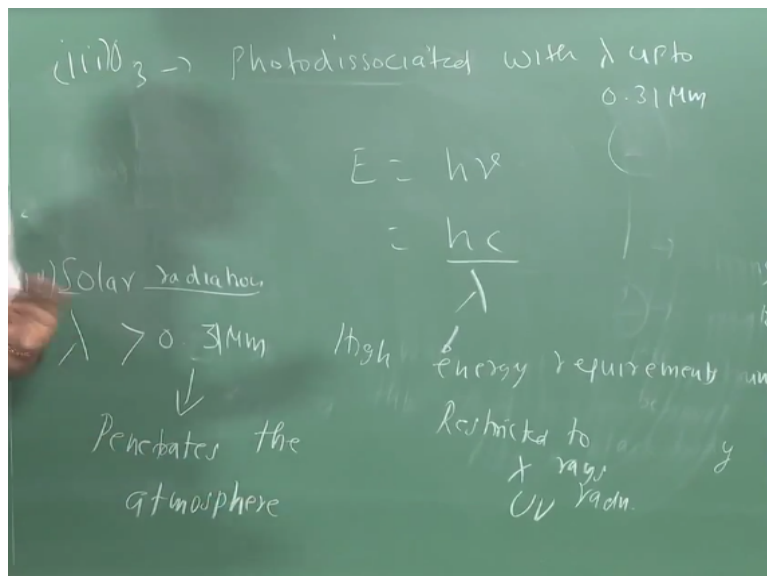 (iii) O3 → Photodissociated with λ upto
0.31 μm
E = hν
= hc
λ
Solar radiation
λ > 0.31 μm
Penetrates the
atmosphere
High energy requirements
Restricted to
X rays
UV radn.
y